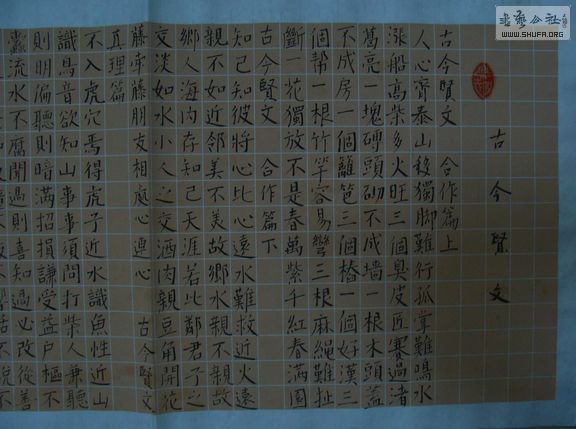 書藝公社
WWW.SHUFA.ORG
古今賢文
古今賢文 合作篇上
人心齊泰山移獨脚難行孤掌難鳴水
漲船高柴多火旺三個臭皮匠賽過渚
葛亮一塊磚頭砌不成墻一根木頭蓋
不成房一個籬笆三個樁一個好漢三
個幫一根竹竿容易彎三根麻繩難扯
斷一花獨放不是春萬紫千紅春滿園
古今賢文 合作篇下
知己知彼將心比心遠水難救近火遠
親不如近鄰美不美故鄉水親不親故
鄉人海内存知己天涯若比鄰君子之
交淡如水小人之交酒肉親豆角開花
藤牽藤朋友相處心連心 古今賢文
真理篇
不入虎穴焉得虎子近水識魚性近山
識鳥音欲知山事須問打柴人兼聽
則明偏聽則暗滿招損謙受益户樞不
蠹流水不腐聞過則喜知過必改從善